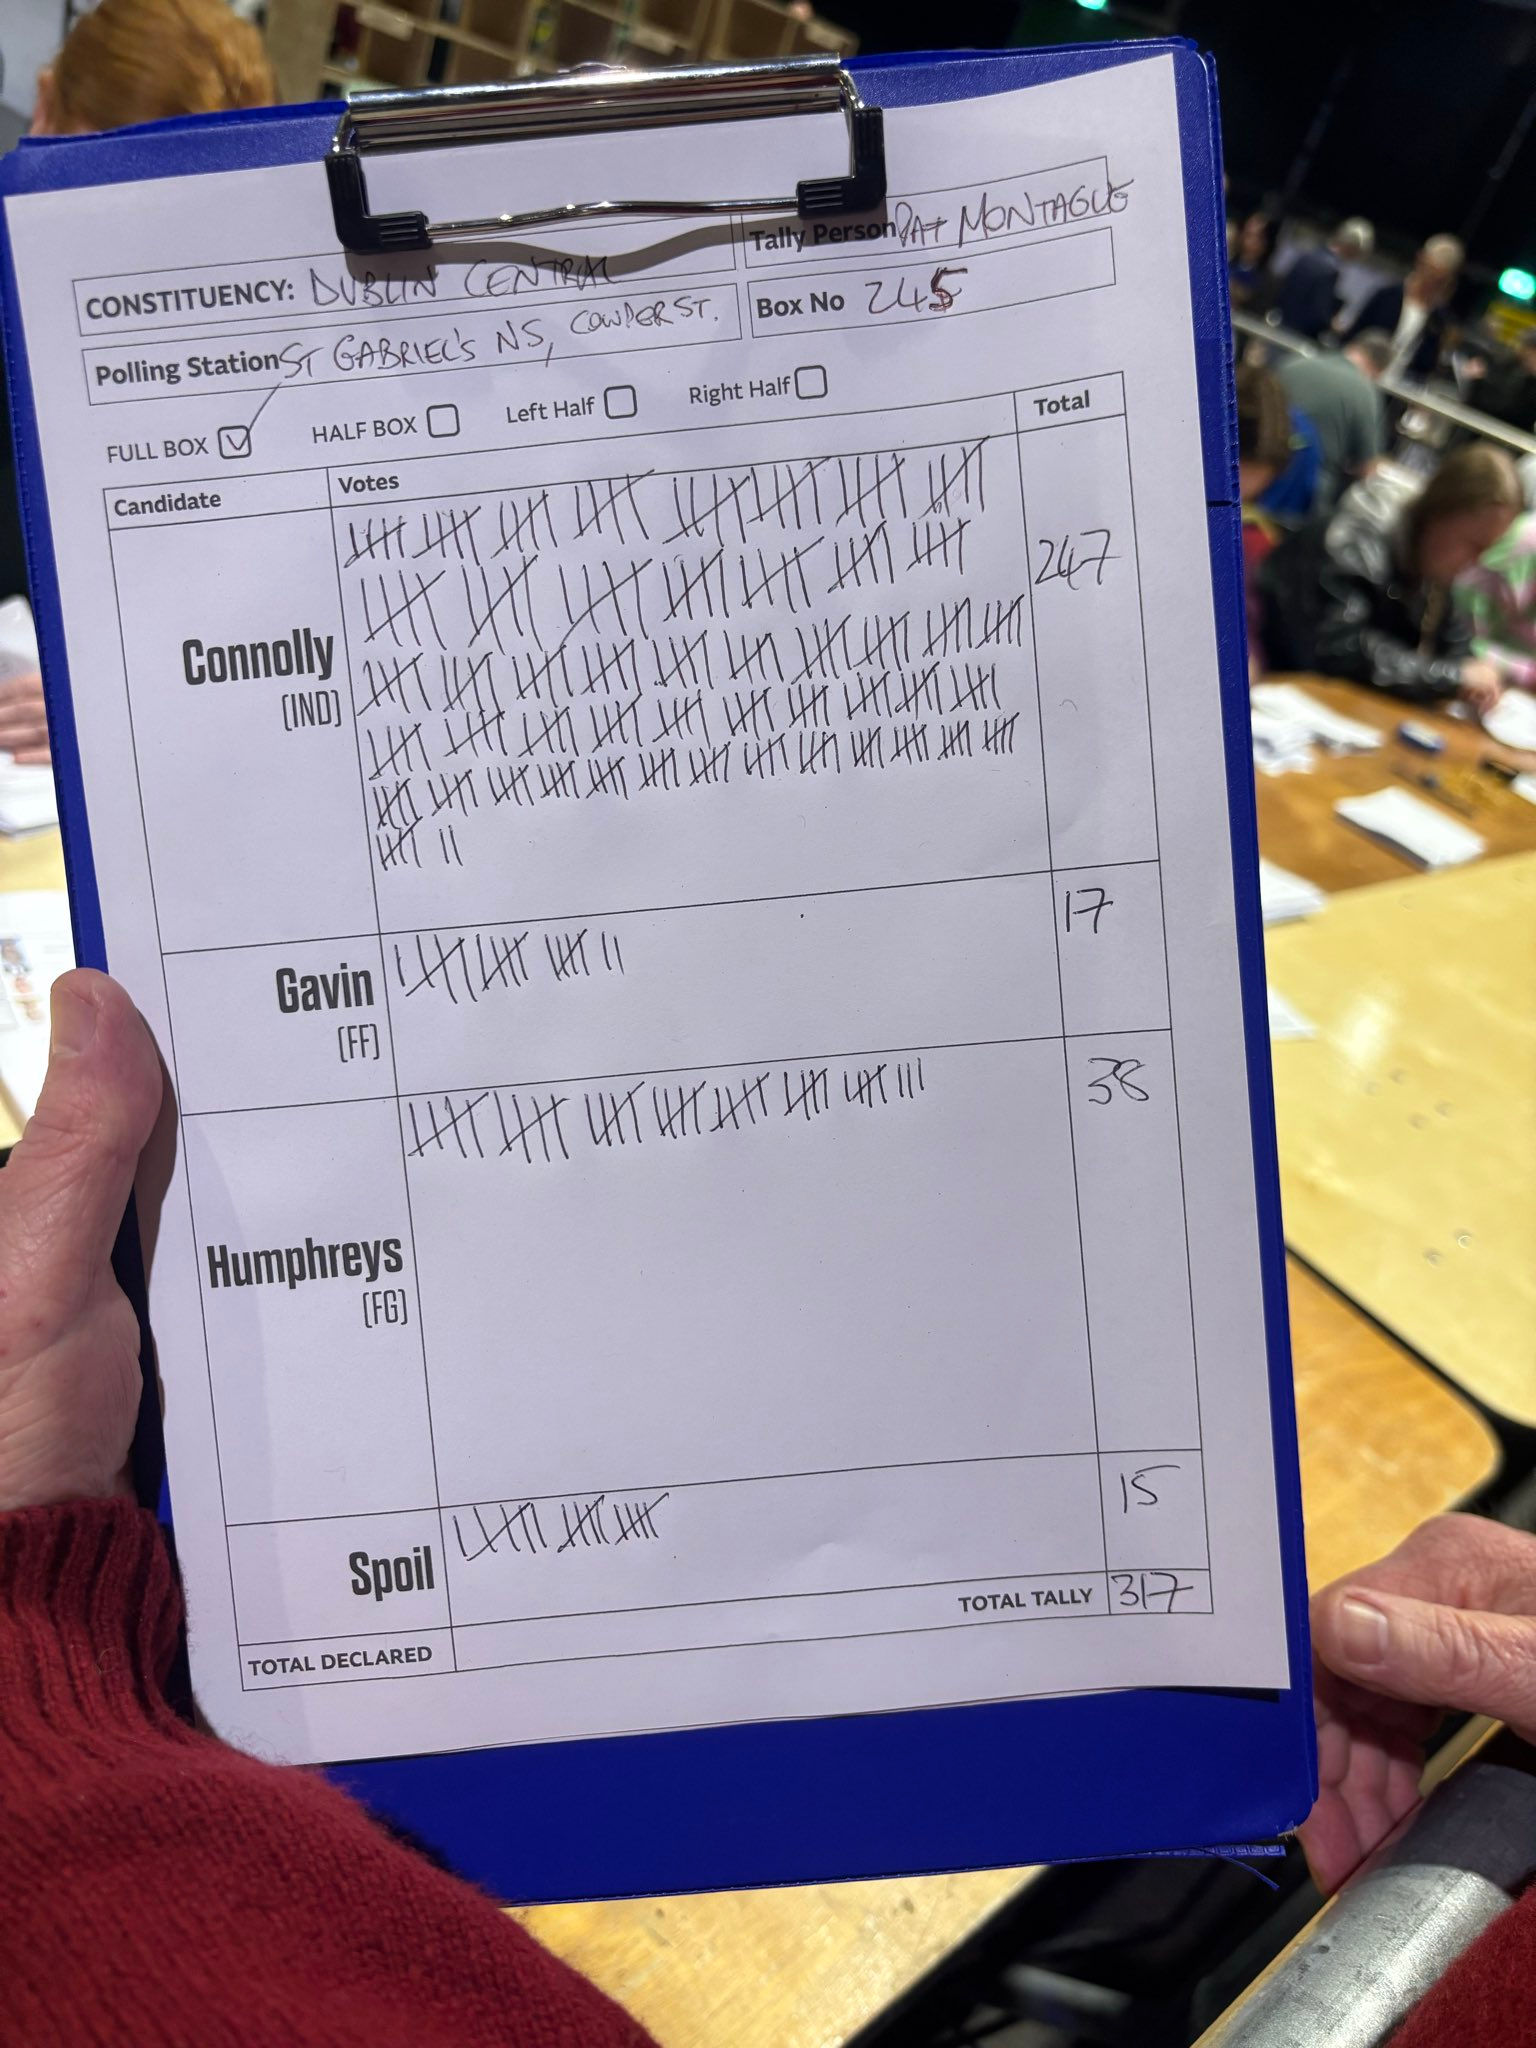 Tally Person PAT MONTAGUE
CONSTITUENCY: DUBLIN CENTRAL
Box No 245
Polling Station ST GABRIEL'S NS, COWPER ST.
FULL BOX ✓ HALF BOX Left Half Right Half
Candidate Votes Total
Connolly 247
(IND)
Gavin 17
(FF)
Humphreys 38
(FG)
Spoil 15
TOTAL TALLY 317
TOTAL DECLARED